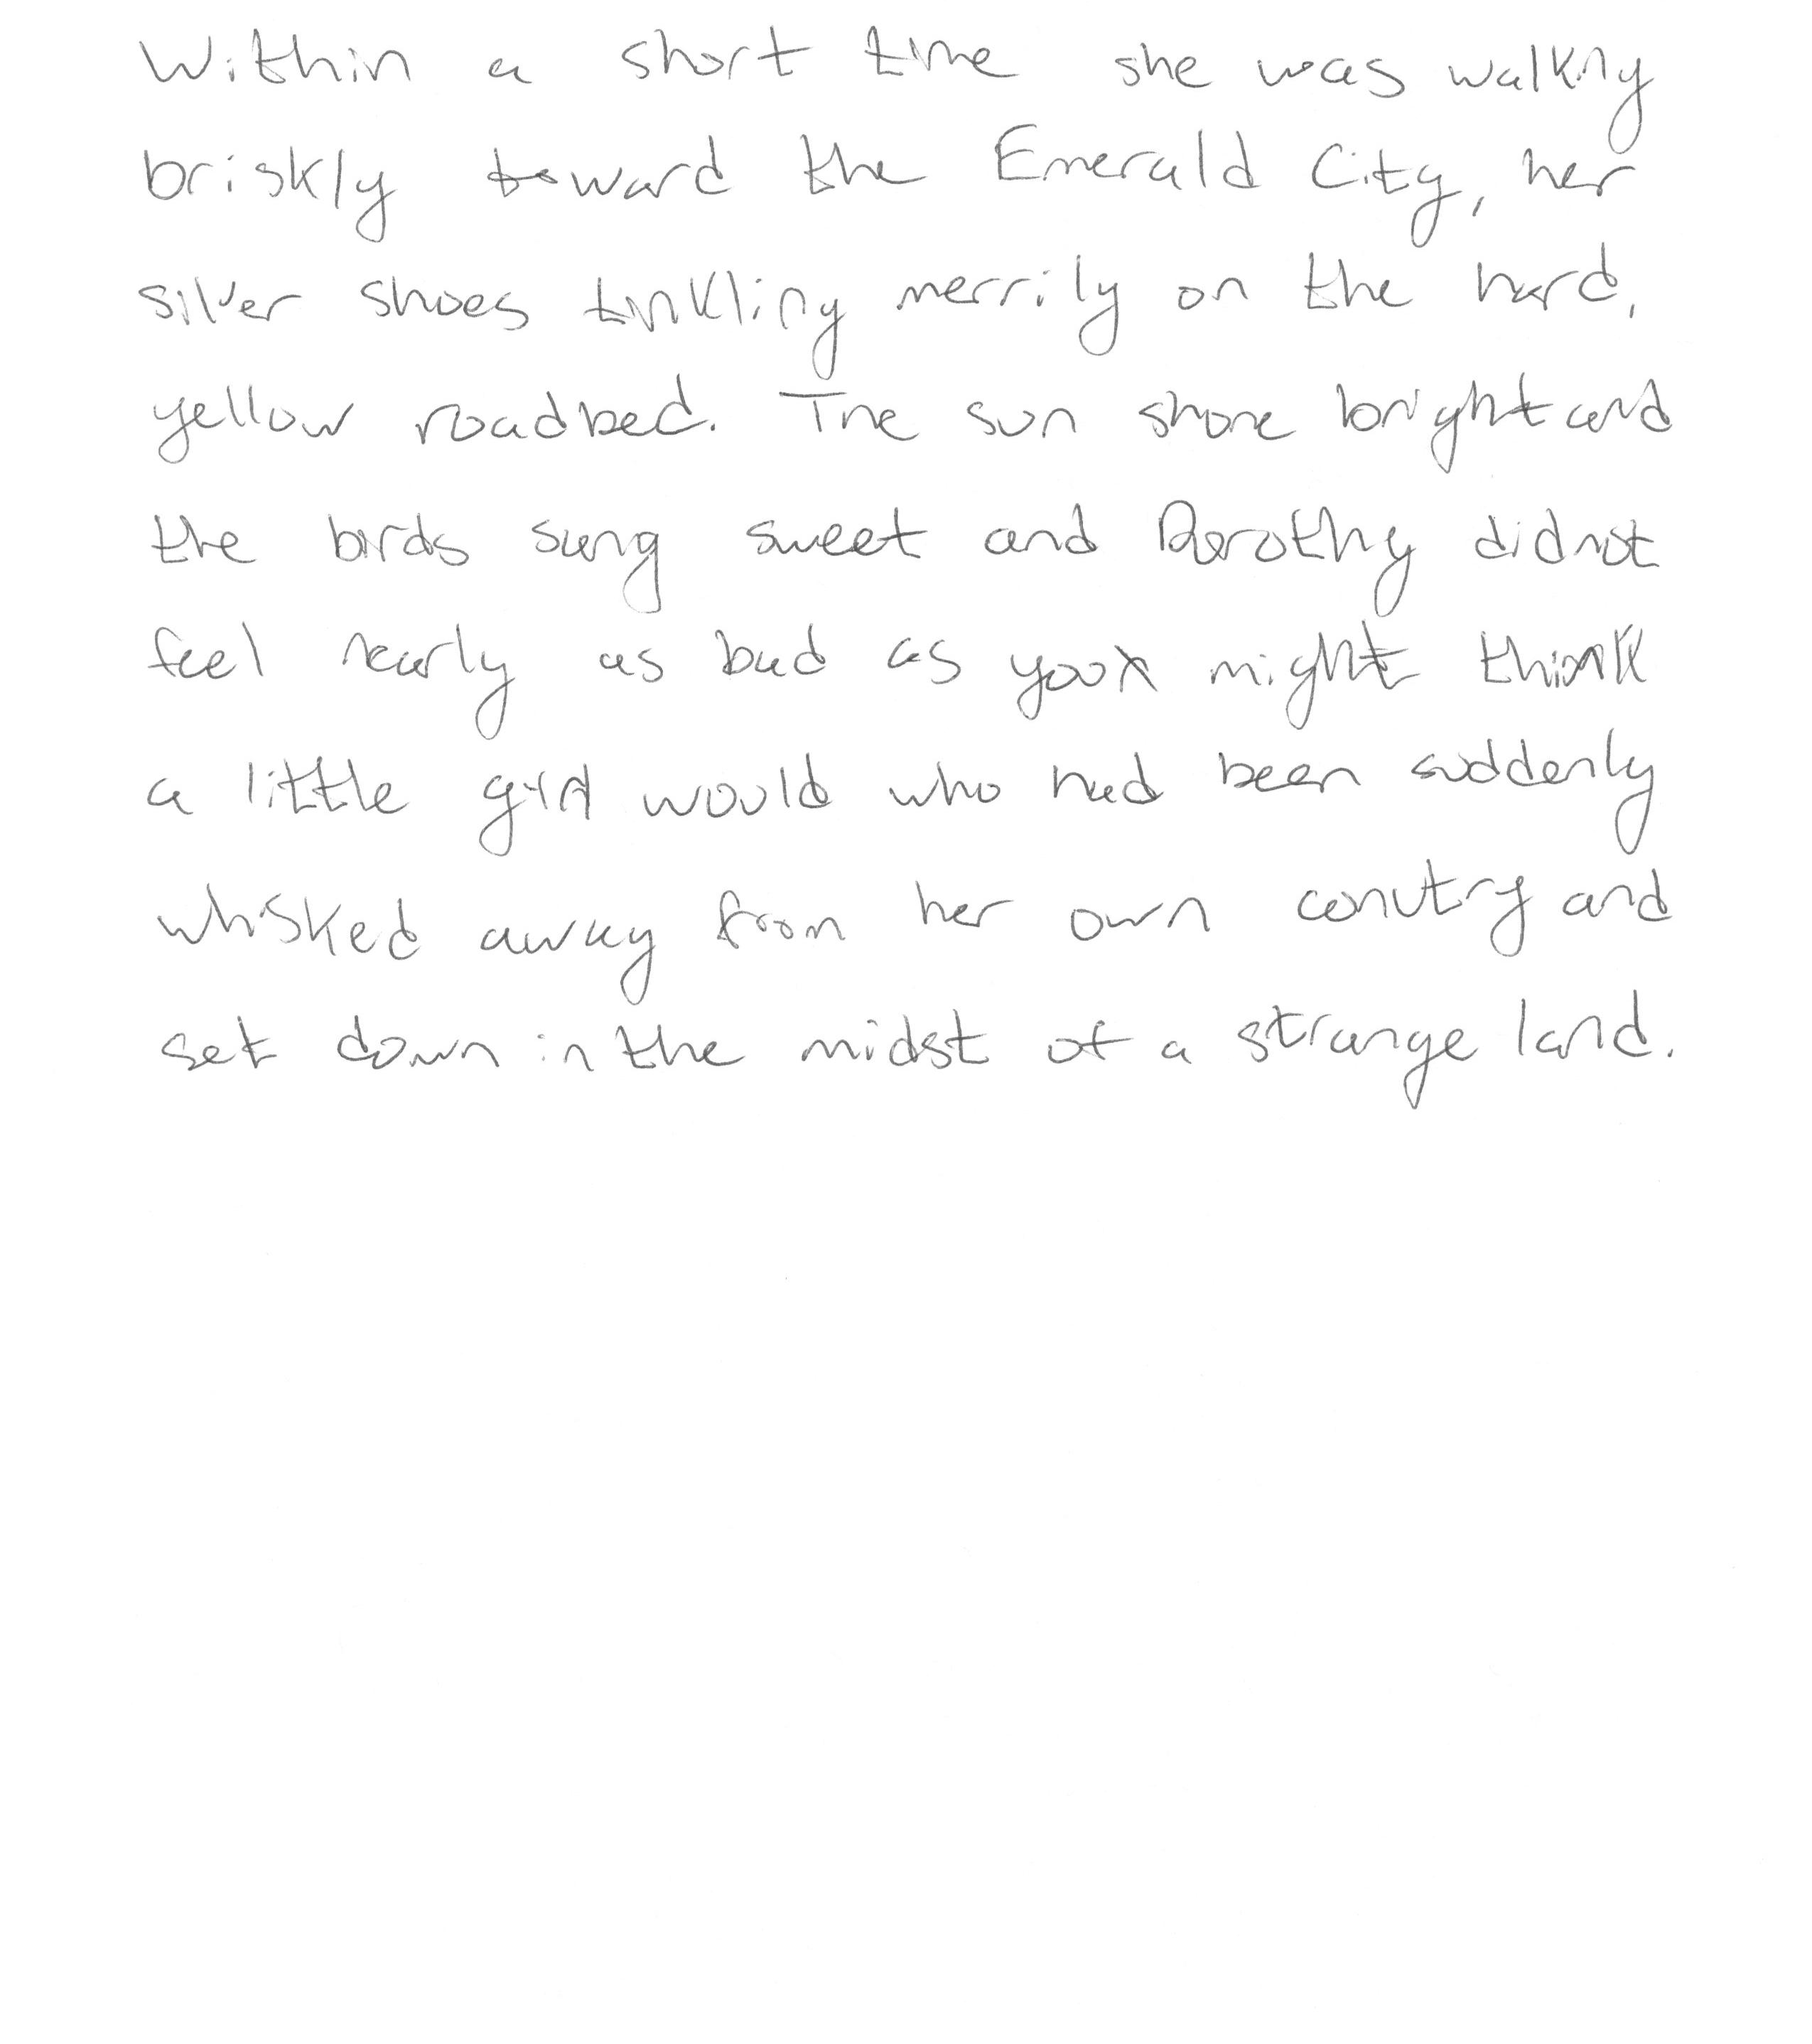 Within a short time she was walking
briskly toward the Emerald City, her
silver shoes tinkling merrily on the hard,
yellow roadbed. The sun shone bright and
the birds sung sweet and Dorothy did not
feel nearly as bad as you might think
a little girl would who had been suddenly
whisked away from her own country and
set down in the midst of a strange land.